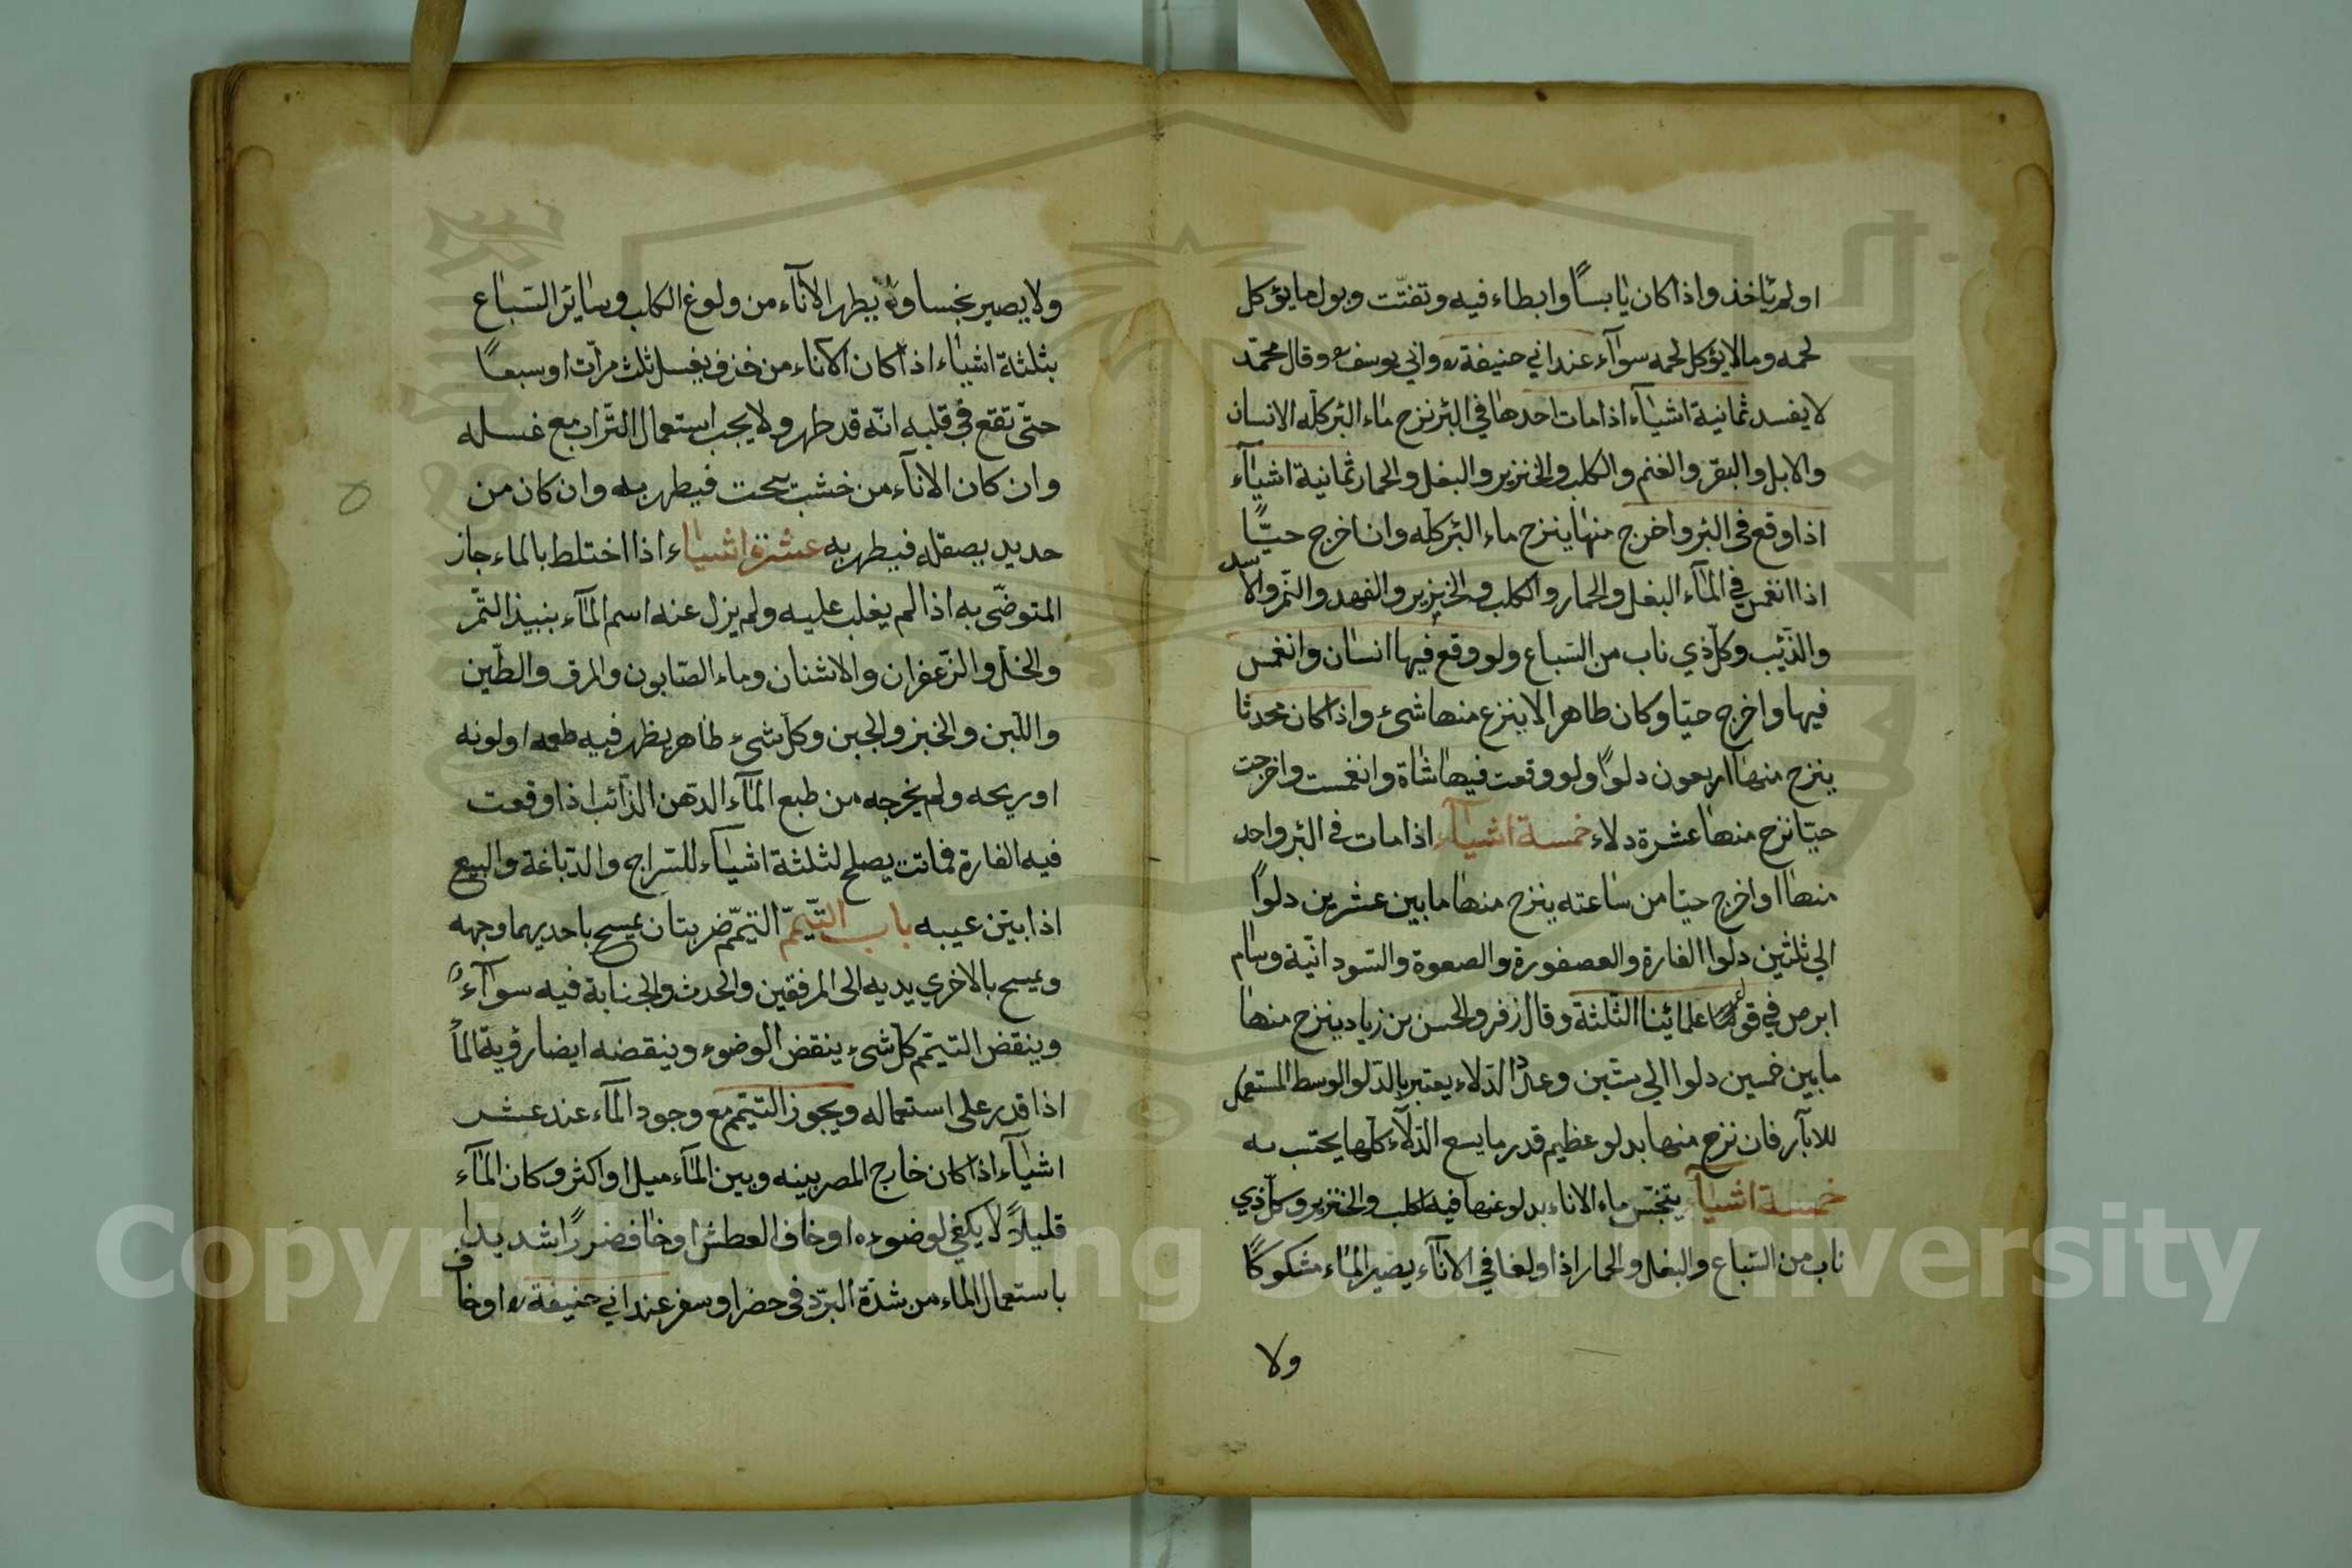 اولم ياخذ واذا كان يابسًا وابطاء فيه وتفتّت وبول ما يؤكل
لحمه وما لا يؤكل لحمه سوآء عند ابي حنيفة ره وابي يوسف ره وقال محمّد
لا يفسد ثمانية اشيآء اذا مات احدها في البئر نزح ماء البئر كلّه الانسان
والابل والبقر والغنم والكلب والخنزير والبغل والحمار ثمانية اشيآء
اذا وقع في البئر واخرج منها ينزح ماء البئر كلّه وان اخرج حيًّا
اذا انغمس في المآء البغل والحمار والكلب والخنزير والفهد والنّمر والاسد
والذّئب وكلّ ذي ناب من السّباع ولو وقع فيها انسان وانغمس
فيها واخرج حيّا وكان طاهرا لا ينزع منها شيء واذا كان محدثا
ينزح منها اربعون دلوًا ولو وقعت فيها شاة وانغمست واخرجت
حيّا نزح منها عشرة دلاء خمسة اشيآء اذا مات في البئر واحد
منها او اخرج حيّا من ساعته ينزح منها ما بين عشرين دلوًا
الي ثلثين دلوا الفارة والعصفورة والصعوة والسّودانيّة وسام
ابرص في علمائنا الثّلثة وقال زفر والحسن بن زياد ينزح منها
ما بين خمسين دلوا الي ستّين وعدد الدّلاء يعتبر بالدّلو الوسط المستعمل
للابآر فان نزح منها بدلو عظيم قدر ما يسع الدّلآء كلّها يحتسب به
خمسة اشيآء يتنجّس ماء الاناء بدلوغها فيه الكلب والخنزير وكلّ ذي
ناب من السّباع والبغل والحمار اذا ولغا في الانآء يصير المآء مشكوكًا
ولا
ولا يصير نجسا و يطهر الانآء من ولوغ الكلب وساير السّباع
بثلثة اشياء اذا كان الاناء من خزف يغسل ثلث مرّات او سبعًا
حتّى تقع في قلبه انّه قد طهر ولا يجب استعمال التّراب مع غسله
وان كان الانآء من خشب سحت فيطهر به وان كان من
حديد يصقله فيطهر به عشرة اشياء اذا اختلط بالماء جاز
المتوضّى به اذا لم يغلب عليه ولم يزل عنه اسم المآء بنبيذ التّمر
والخلّ والزّعفران والاشنان وماء الصّابون والمرق والطّين
واللّبن والخبز والجبن وكلّ شيء طاهر يظهر فيه طعمه او لونه
او ريحه ولم يخرجه من طبع المآء الدّهن الذّائب اذا وقعت
فيه الفارة فماتت يصلح لثلثة اشيآء للسّراج والدّباغة والبيع
اذا بيّن عيبه باب التّيمّم التيمّم ضربتان يمسح باحديهما وجهه
ويمسح بالاخري يديه الى المرفقين والحدث والجنابة فيه سوآءً
وينقض التيمّم كلّ شيء ينقض الوضوء وينقضه ايضا رؤية المآ
اذا قدر على استعماله ويجوز التيمّم مع وجود المآء عند عشر
اشيآء اذا كان خارج المصر بينه وبين المآء ميل او اكثر وكان المآء
قليلًا لا يكفي لوضوءه او خاف العطش او خاف ضررًا شديدا
باستعمال الماء من شدّة البرد في حضر او سفر عند ابي حنيفة ره او خاف
Copyright © King Saud University